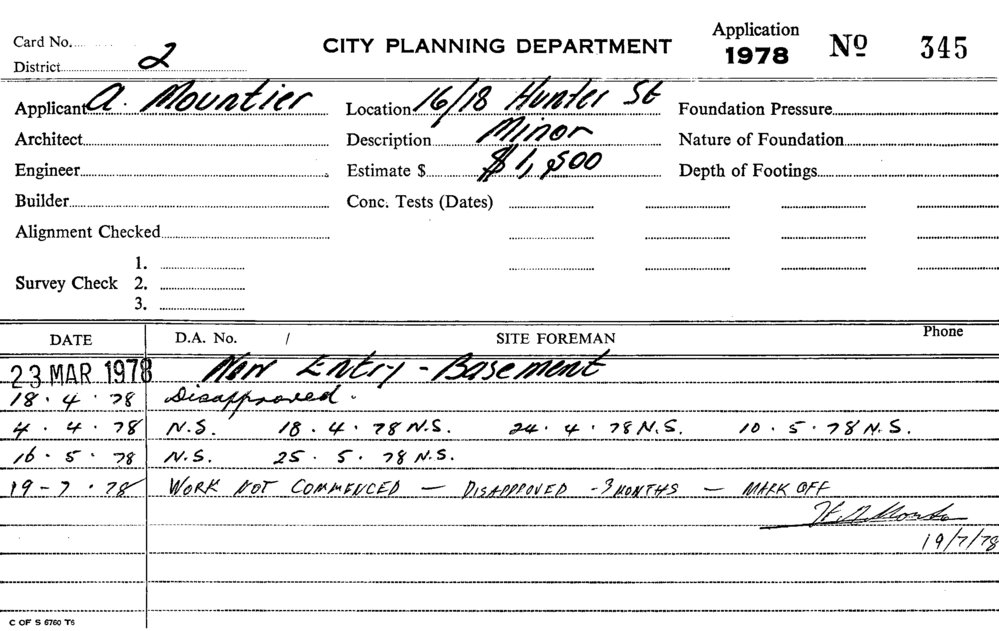 Card No.
District 2
CITY PLANNING DEPARTMENT
Application 1978 Nº 345
Applicant A. Mountier Location 16/18 Hunter St Foundation Pressure
Architect Description Minor Nature of Foundation
Engineer Estimate $ $1,500 Depth of Footings
Builder Conc. Tests (Dates)
Alignment Checked
Survey Check 1.
2.
3.
DATE D.A. No. / SITE FOREMAN Phone
23 MAR 1978 New Entry - Basement
18.4.78 Disapproved.
4.4.78 N.S. 18.4.78 N.S. 24.4.78 N.S. 10.5.78 N.S.
16.5.78 N.S. 25.5.78 N.S.
19-7.78 WORK NOT COMMENCED — DISAPPROVED - 3 MONTHS — MARK OFF
19/7/78
C OF S 6760 T6